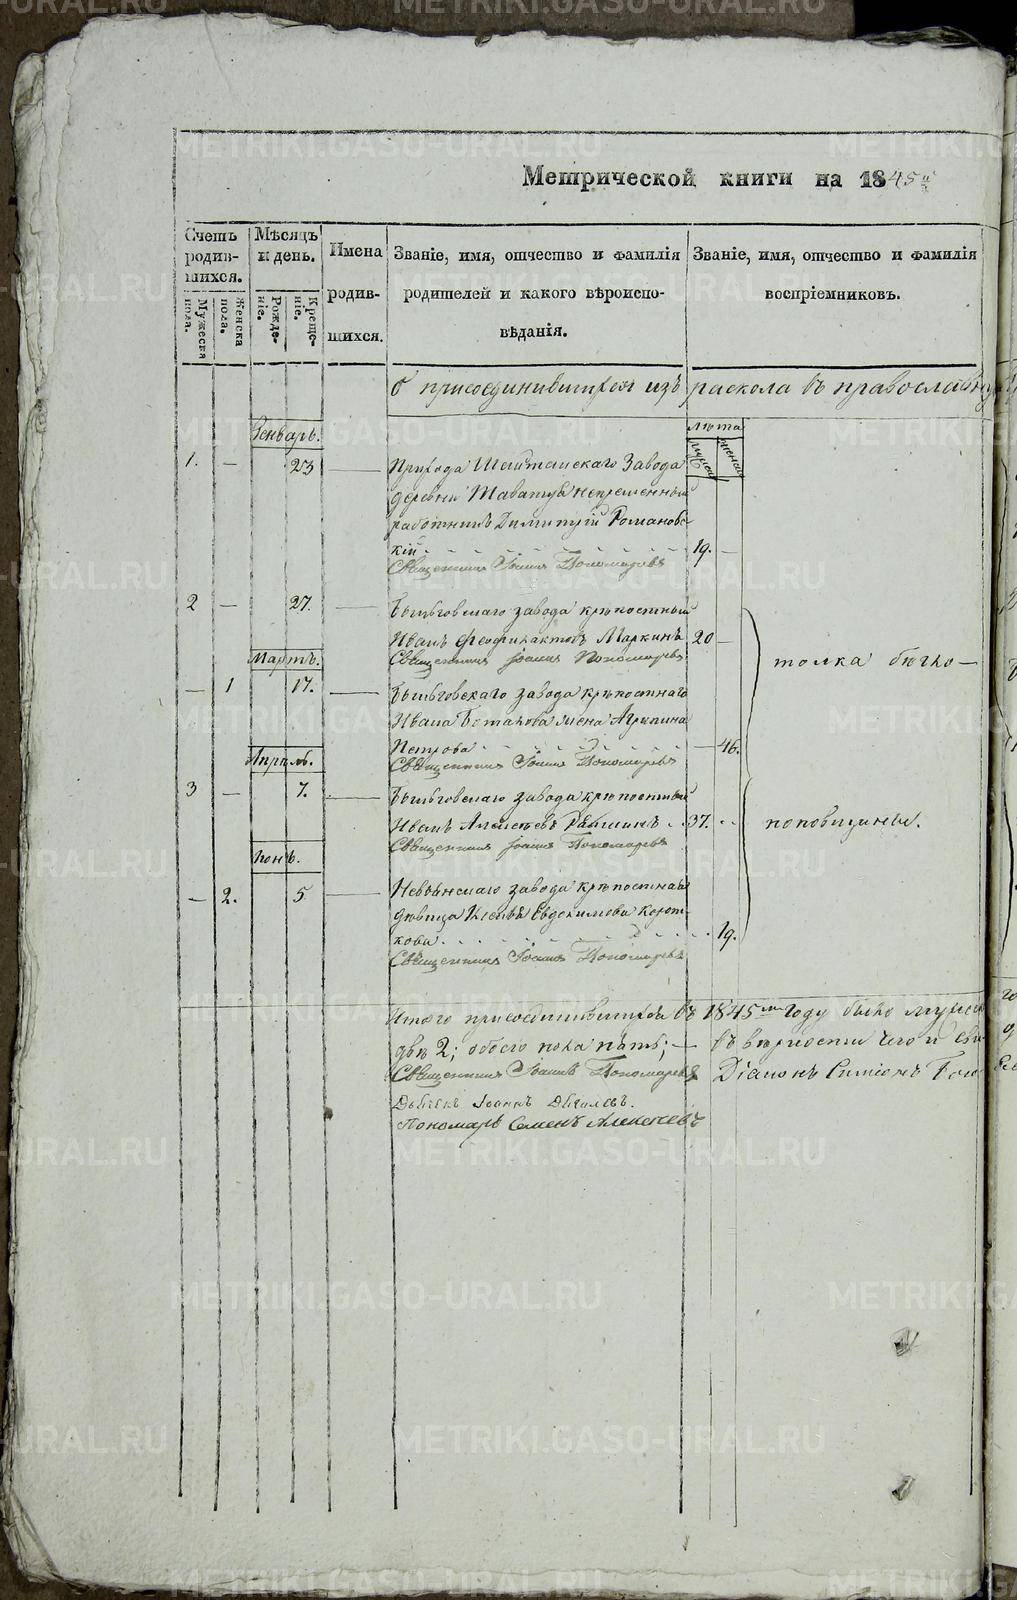 Метрической книги на 1845 й
Счетъ родив-шихся.
Мѣсяцъ и день.
Имена родив-шихся.
Званіе, имя, отчество и фамилія
родителей и какого вѣроиспо-
вѣданія.
Званіе, имя, отчество и фамилія
воспріемниковъ.
Мужеска пола.
Женска пола.
Рожде-ніе.
Креще-ніе.
О присоединившихся изъ раскола въ православну
Генварь.
лѣта
мужес женск
1. — 23 — Прихода Шайтанскаго Завода
деревни Таватуя непременный
работникъ Димитрій Романовс-
кій 19. —
Священникъ Іоаннъ Пономаревъ
2 — 27. — Быньговскаго завода крѣпостный
Иванъ Феофилактовъ Маркинъ 20 —
Священникъ Іоаннъ Пономаревъ
толка бѣгло—
Мартъ.
— 1 17. — Быньговскаго завода крѣпостнаго
Ивана Ботахова жена Агрипина
Петрова — 46.
Священникъ Іоаннъ Пономаревъ
Апрѣль.
3 — 7. — Быньговскаго завода крѣпостный
Иванъ Алексѣевъ 37.
Священникъ Іоаннъ Пономаревъ
поповщины.
Іюнь.
— 2. 5 — Невьянскаго завода крѣпостная
дѣвица Евдокимова Корот-
кова 19.
Священникъ Іоаннъ Пономаревъ
Итого присоединившихся въ 1845 мъ году было мужес
двѣ 2; обоего пола пять; — въ вѣрности чего и сви
Священникъ Іоаннъ Пономаревъ Діаконъ Симеонъ
Дьячекъ Іоаннъ Дягилевъ.
Пономарь Семенъ Алексѣевъ
METRIKI.GASO-URAL.RU